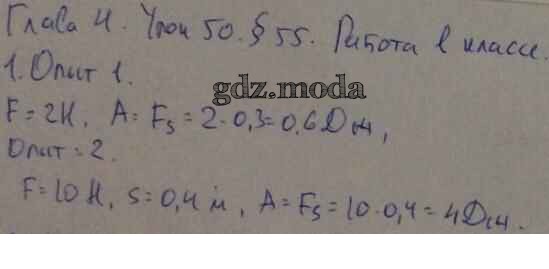 Глава 4. Урок 50. § 55. Работа в классе.
1. Опыт 1.
gdz.moda
F = 2Н, A = Fs = 2·0,3 = 0,6 Дж,
Опыт 2.
F = 10 Н, s = 0,4 м, A = Fs = 10·0,4 = 4 Дж.